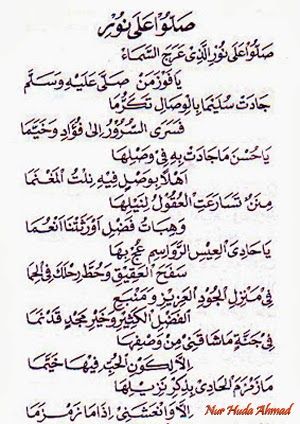 صَلُّوْا عَلَى نُوْرٍ
صَلُّوْا عَلَى نُوْرِ الَّذِيْ عَرَجَ السَّمَاءْ
يَا فَوْزَ مَنْ صَلَّى عَلَيْهِ وَسَلَّمْ
جَادَتْ سُلَيْمَا بِالْوِصَالِ تَكَرُّمَا
فَسَرَى السُّرُوْرُ اِلَى فُؤَادٍ وَخَيَّمَا
يَا حُسْنَ مَا جَادَتْ بِهِ فِيْ وَصْلِهَا
اَهْلًا بِوَصْلٍ فِيْهِ نِلْتُ الْمَغْنَمَا
مِنَنٌ تَسَارَعَتِ الْعُقُوْلُ لِنَيْلِهَا
وَهِبَاتُ فَضْلٍ اَوْرَثَتْنَا اَنْعُمَا
يَا حَادِيَ الْعِيْسِ الرَّوَاسِمِ عُجْ بِهَا
سَفْحَ الْعَقِيْقِ وَحُطَّ رَحْلَكَ فِي الْحِمَا
فِيْ مَنْزِلِ الْجُوْدِ الْعَزِيْزِ وَمَنْبَعِ
الْفَضْلِ الْكَثِيْرِ وَخَيْرِ مَجْدٍ قَدْ نَمَا
فِيْ جَنَّةٍ مَا شَاقَنِيْ مِنْ وَصْفِهَا
اِلَّا لِكَوْنِ الْحِبِّ فِيْهَا خَيَّمَا
مَا زَمْزَمَ الْحَادِيْ بِذِكْرِ نَزِيْلِهَا
اِلَّا وَانْعَشَنِيْ اِذَا مَا زَمْزَمَا
Nur Huda Ahmad